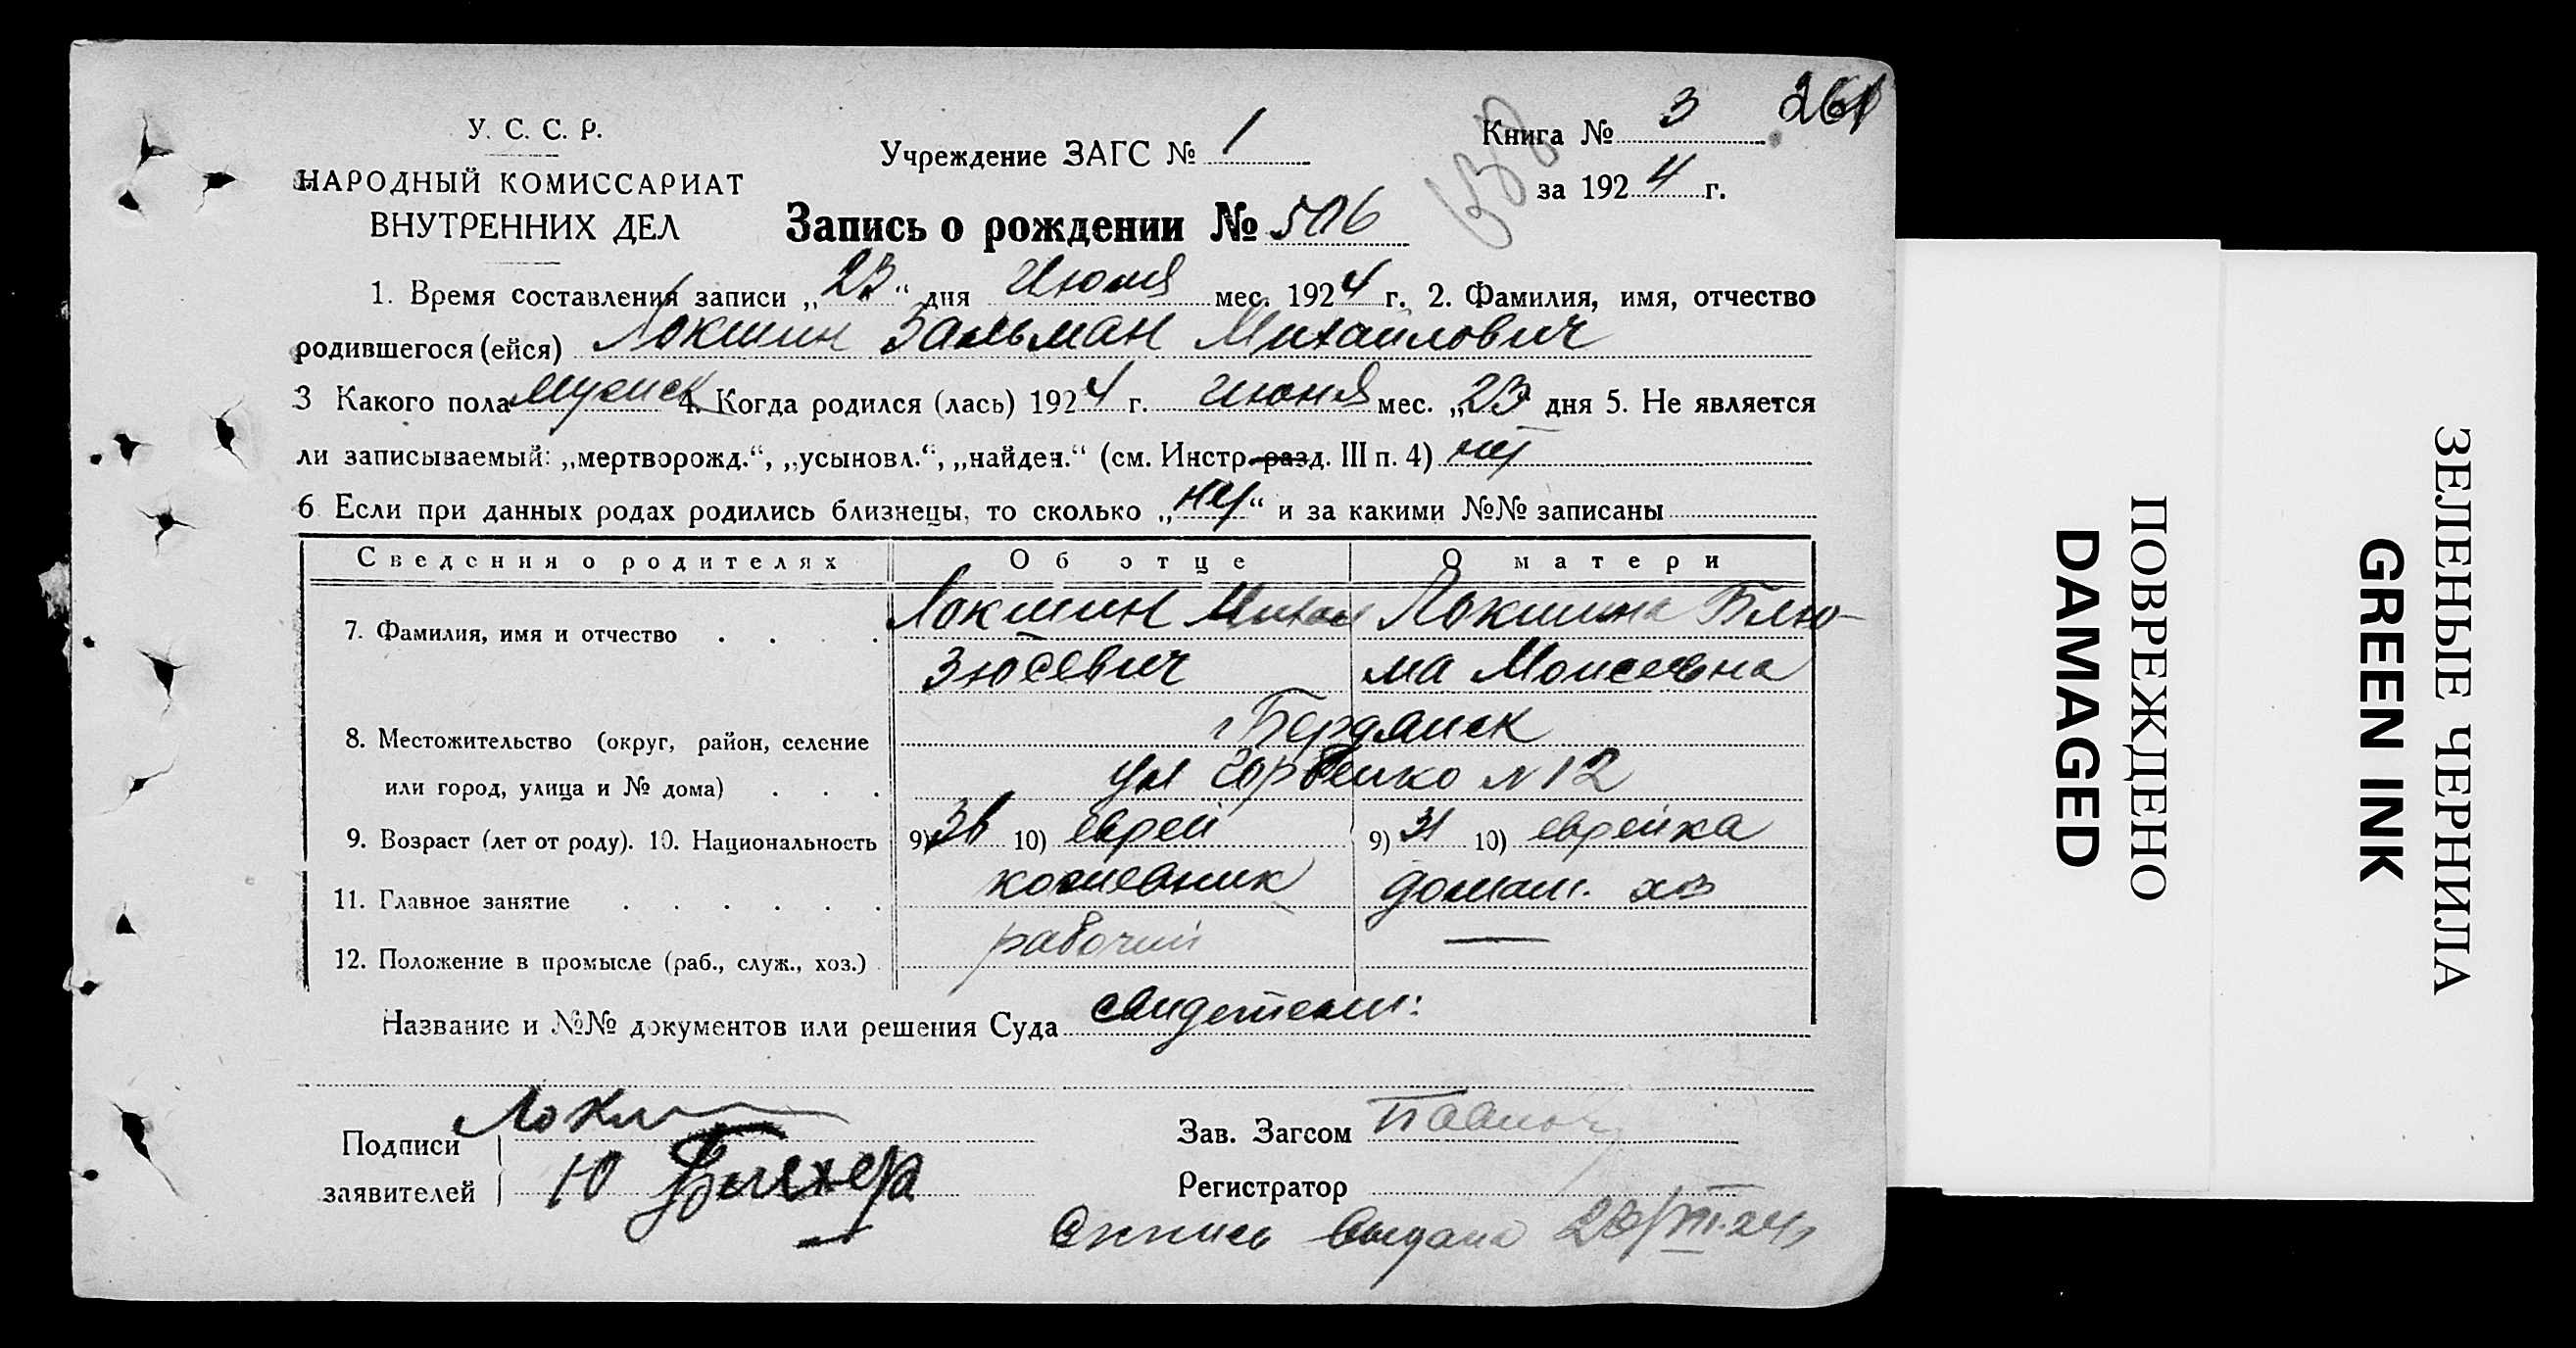 261
У. С. С. Р.
НАРОДНЫЙ КОМИССАРИАТ
ВНУТРЕННИХ ДЕЛ
Учреждение ЗАГС № 1
Книга № 3
за 1924 г.
Запись о рождении № 506
1. Время составления записи „23“ дня Июня мес. 1924 г. 2. Фамилия, имя, отчество
родившегося (ейся) Локшин Зальман Михайлович
3 Какого пола мужск 4. Когда родился (лась) 1924 г. июня мес. „23 дня 5. Не является
ли записываемый: „мертворожд.“, „усыновл.“, „найден.“ (см. Инстр. разд. III п. 4) нет
6 Если при данных родах родились близнецы, то сколько „нет“ и за какими №№ записаны
Сведения о родителях Об отце О матери
7. Фамилия, имя и отчество Локшин Михаил Локшина Блю-
Зюсевич ма Моисеевна
8. Местожительство (округ, район, селение г Бердянск
или город, улица и № дома) ул Горбенко №12
9. Возраст (лет от роду). 10. Национальность 9) 36 10) еврей 9) 31 10) еврейка
11. Главное занятие кожевник домаш. хоз
12. Положение в промысле (раб., служ., хоз.) рабочий —
Название и №№ документов или решения Суда свидетели:
Подписи
заявителей
Зав. Загсом
Регистратор
выдана
ПОВРЕЖДЕНО
DAMAGED
ЗЕЛЕНЫЕ ЧЕРНИЛА
GREEN INK